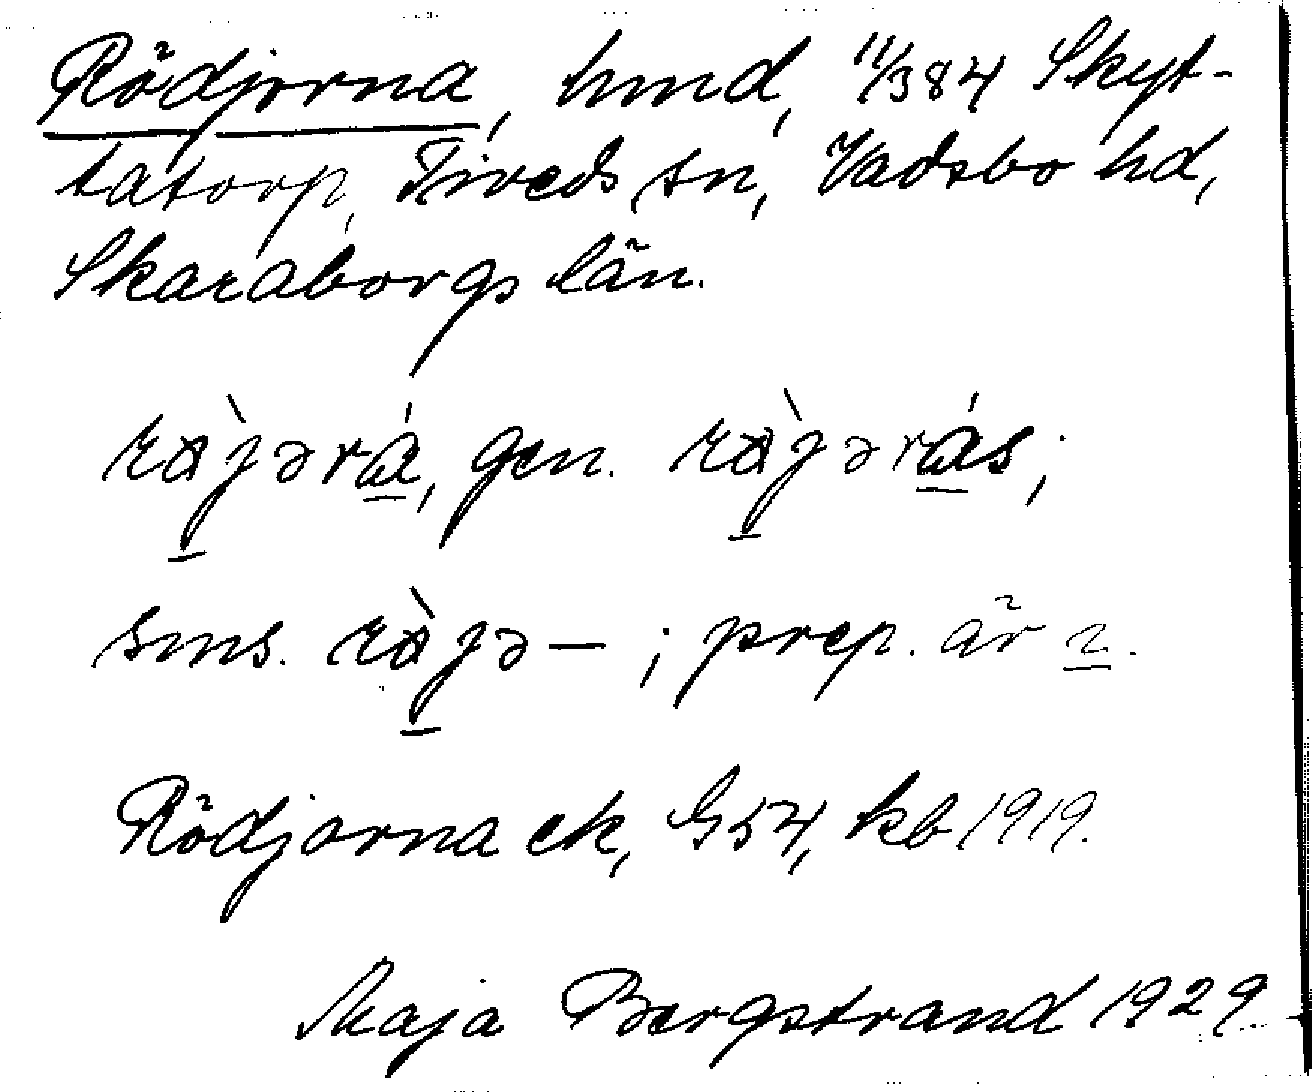 Rödjorna, hmd, 11/384 Skyt-
tatorp, Tiveds sn, Vadsbo hd,
Skaraborgs län.
gen.
sms. ; prep. är ı.
Rödjorna ek, G54, kb 1919.
Maja Bergstrand 1929